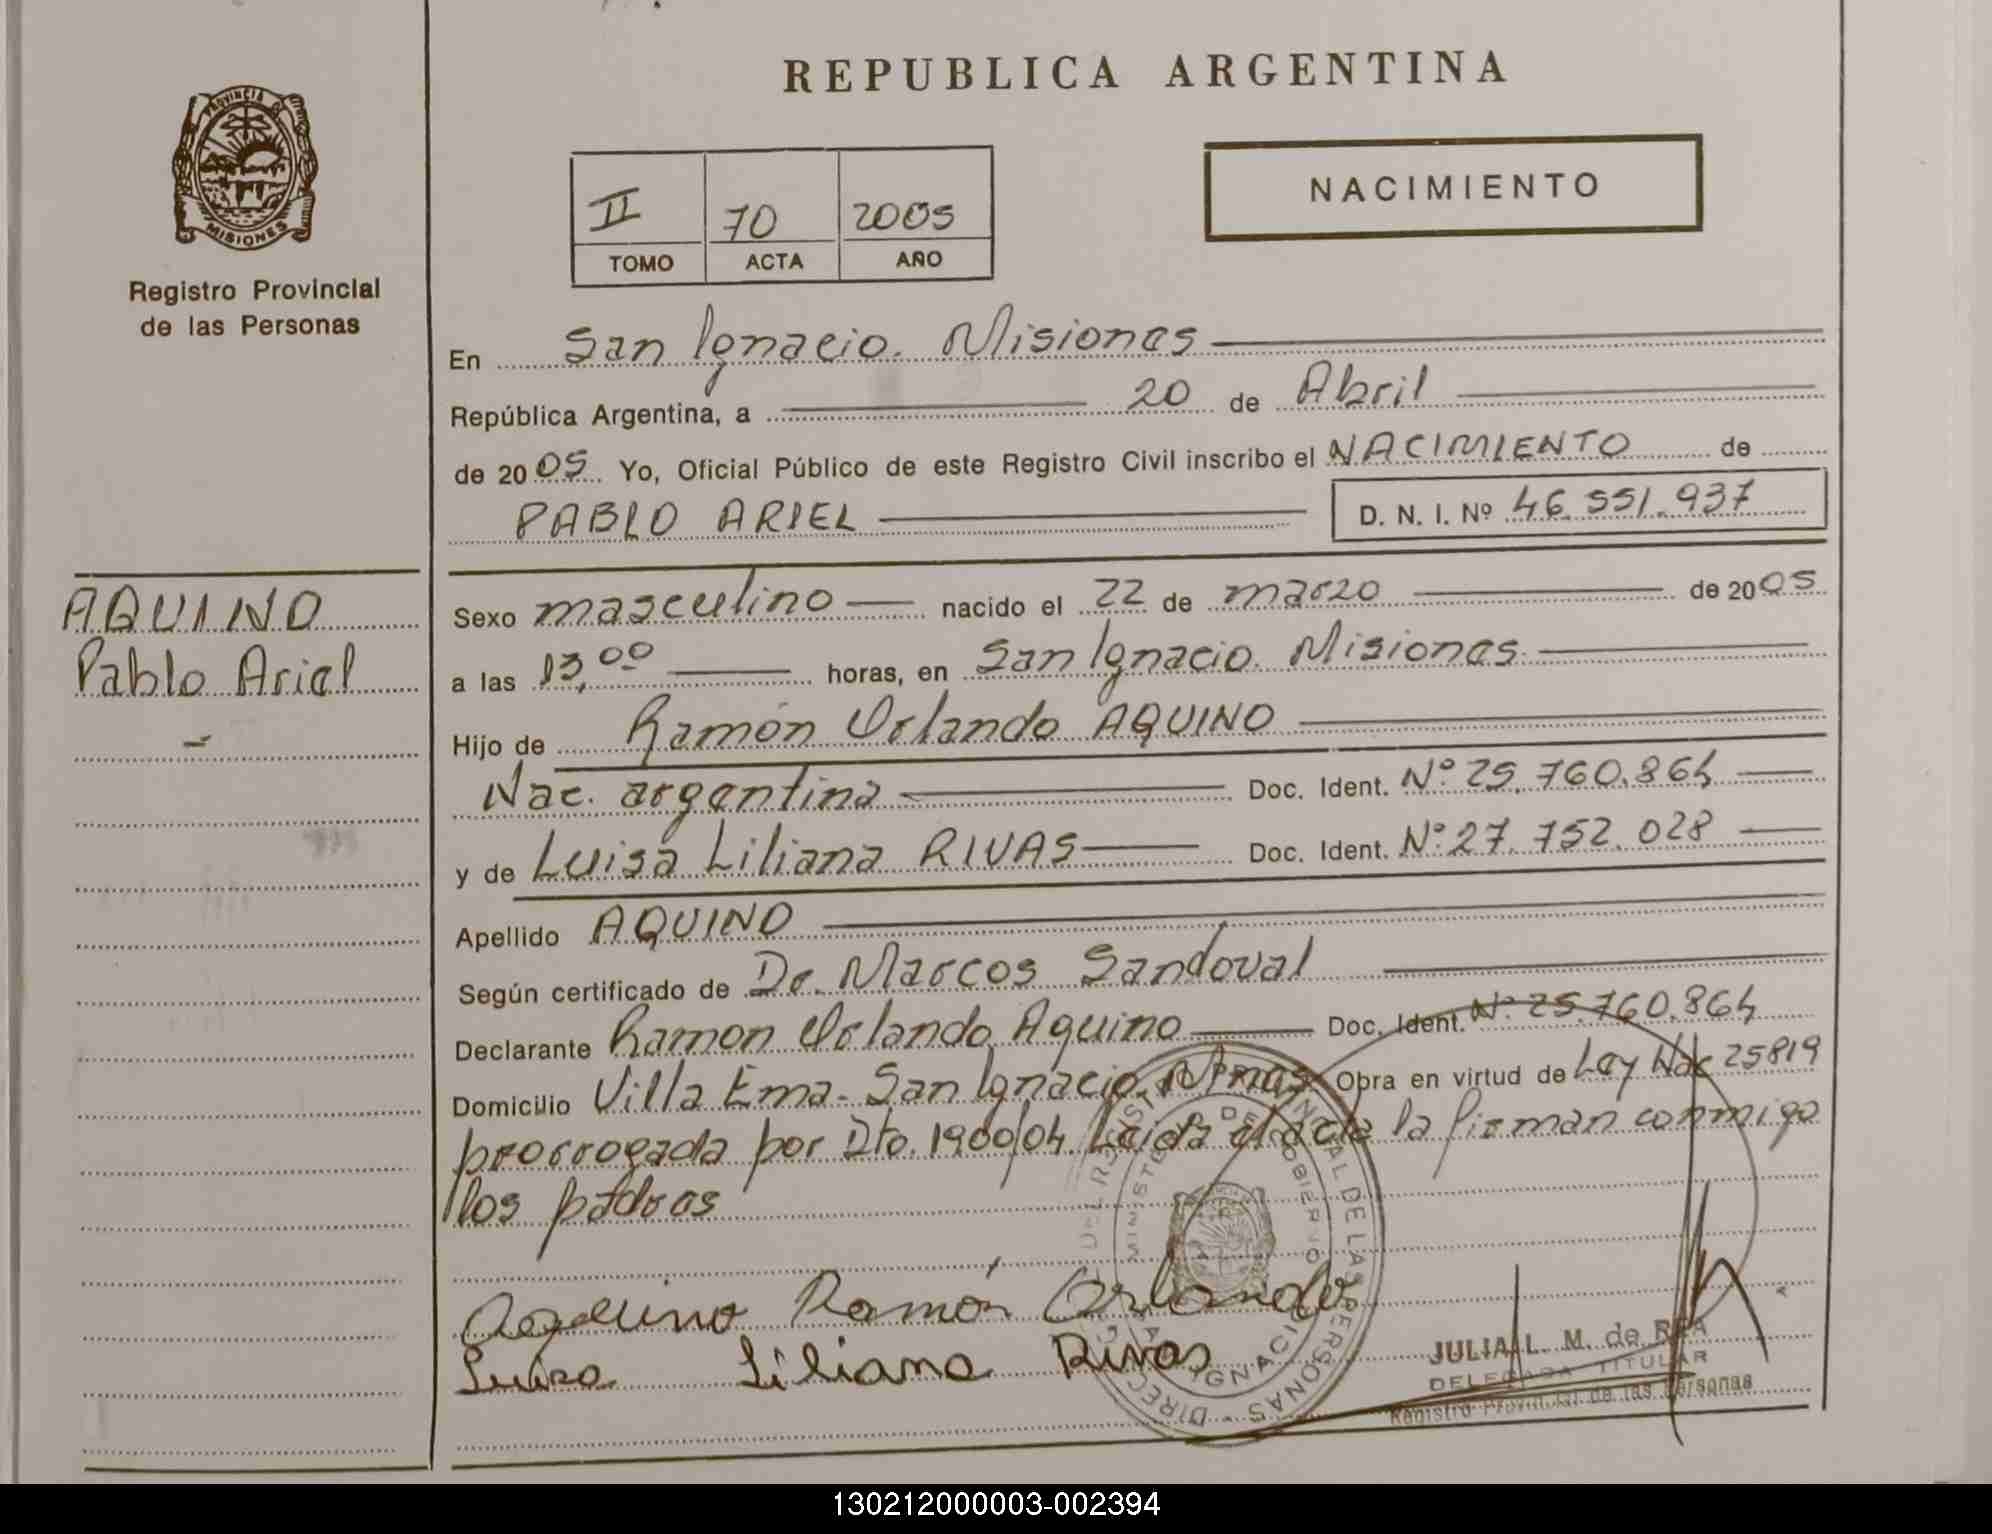 REPUBLICA ARGENTINA
PROVINCIA DE
MISIONES
Registro Provincial
de las Personas
II 70 2005
TOMO ACTA AÑO
NACIMIENTO
En San Ignacio. Misiones
República Argentina, a 20 de Abril
de 2005 Yo, Oficial Público de este Registro Civil inscribo el NACIMIENTO de
PABLO ARIEL D. N. I. Nº 46.551.937
AQUINO
Pablo Ariel
Sexo masculino nacido el 22 de marzo de 2005
a las 13,00 horas, en San Ignacio. Misiones
Hijo de Ramón Orlando AQUINO
Nac. argentina Doc. Ident. Nº 25.760.864
y de Luisa Liliana RIVAS Doc. Ident. Nº 27.752.028
Apellido AQUINO
Según certificado de Dr. Marcos Sandoval
Declarante Ramon Orlando Aquino Doc. Ident. Nº 25.760.864
Domicilio Villa Ema - San Ignacio. Mnes Obra en virtud de Ley Nac 25819
prorrogada por Dto. 1900/04. Leida el acta la firman conmigo
los padres
Aquino Ramón Orlando
Luisa Liliana Rivas
JULIA L. M. de REA
DELEGADA TITULAR
Registro Provincial de las Personas
130212000003-002394